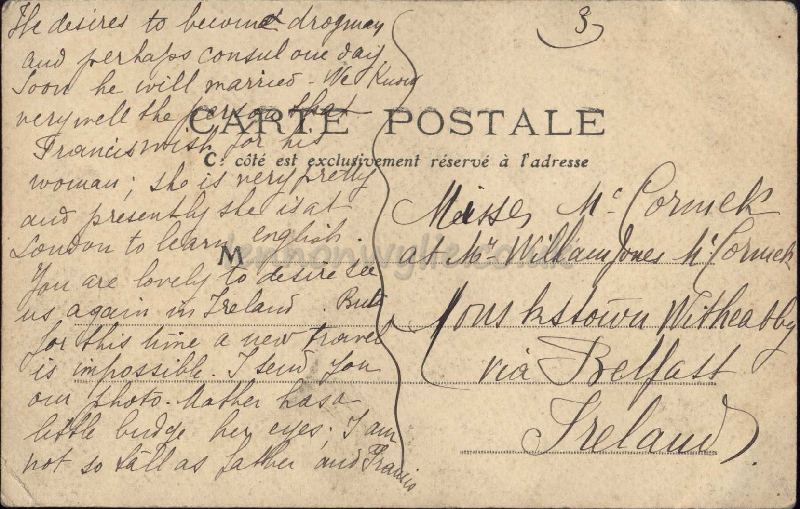 3
He desires to become drogman
and perhaps consul one day
Soon he will married - We Know
very well the person that
Francis wish for his
woman; she is very pretty
and presently she is at
London to learn english.
You are lovely to desire see
us again in Ireland. But
for this time a new travel
is impossible. I send you
our photo. Mather has a
little budge her eyes. I am
not so tall as father and Francis
CARTE POSTALE
Ce côté est exclusivement réservé à l'adresse
M
lennonwylie.co.uk
Misses Mc Cormek
at Mr William Jones Mc Cormek
via Belfast
Ireland